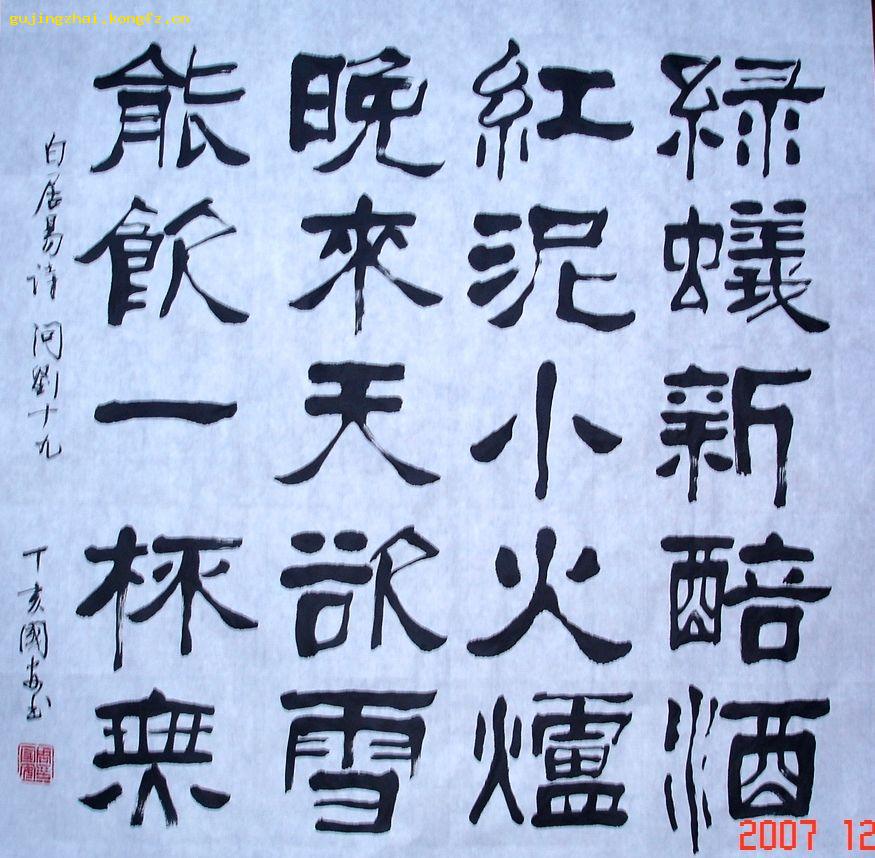 gujingzhai.kongfz.cn
綠蟻新醅酒
紅泥小火爐
晚來天欲雪
能飲一杯無
白居易诗 问劉十九
丁亥國安书
2007 12